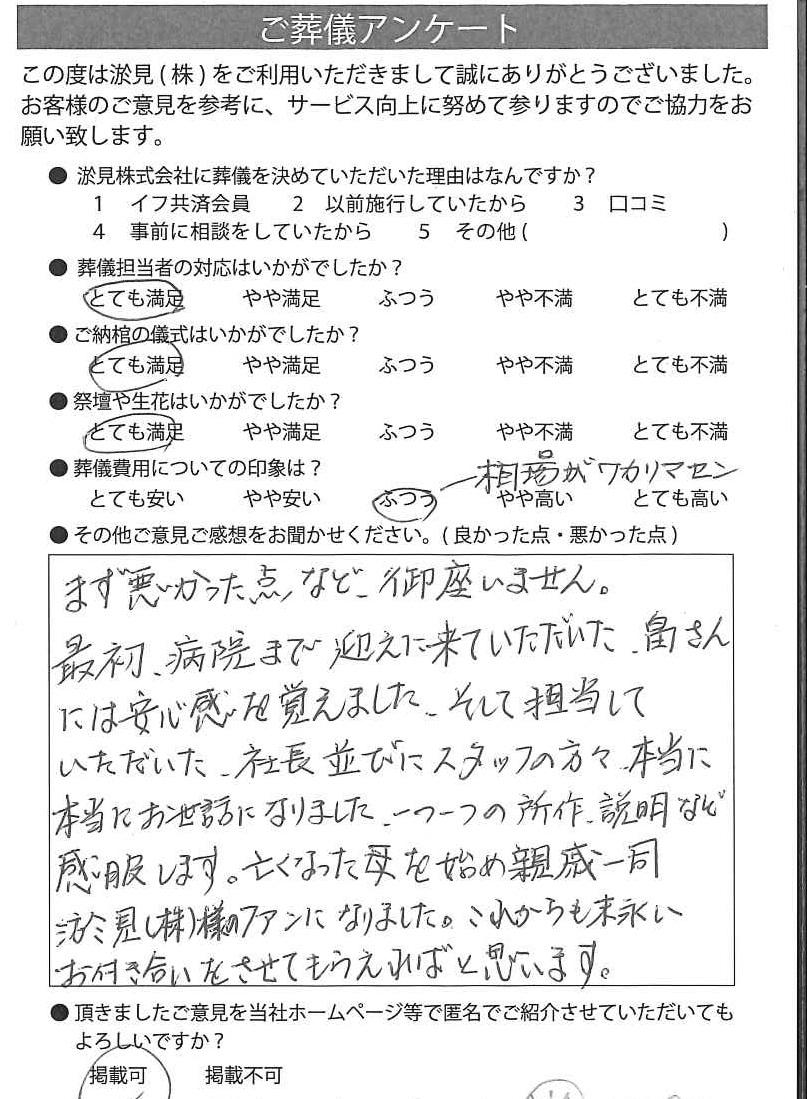 ご葬儀アンケート
この度は淤見(株)をご利用いただきまして誠にありがとうございました。
お客様のご意見を参考に、サービス向上に努めて参りますのでご協力をお
願い致します。
● 淤見株式会社に葬儀を決めていただいた理由はなんですか？
1 イフ共済会員 2 以前施行していたから 3 口コミ
4 事前に相談をしていたから 5 その他( )
● 葬儀担当者の対応はいかがでしたか？
とても満足 やや満足 ふつう やや不満 とても不満
● ご納棺の儀式はいかがでしたか？
とても満足 やや満足 ふつう やや不満 とても不満
● 祭壇や生花はいかがでしたか？
とても満足 やや満足 ふつう やや不満 とても不満
● 葬儀費用についての印象は？
相場がワカリマセン
とても安い やや安い ふつう やや高い とても高い
● その他ご意見ご感想をお聞かせください。(良かった点・悪かった点)
まず悪かった点、など、御座いません。
最初、病院まで迎えに来ていただいた、畠さん
には安心感を覚えました、そして担当して
いただいた、社長並びにスタッフの方々、本当に
本当にお世話になりました、一つ一つの所作、説明など
感服します。亡くなった母を始め親戚一同
淤見(株)様のファンになりました。これからも末永い
お付き合いをさせてもらえればと思います。
● 頂きましたご意見を当社ホームページ等で匿名でご紹介させていただいても
よろしいですか？
掲載可 掲載不可